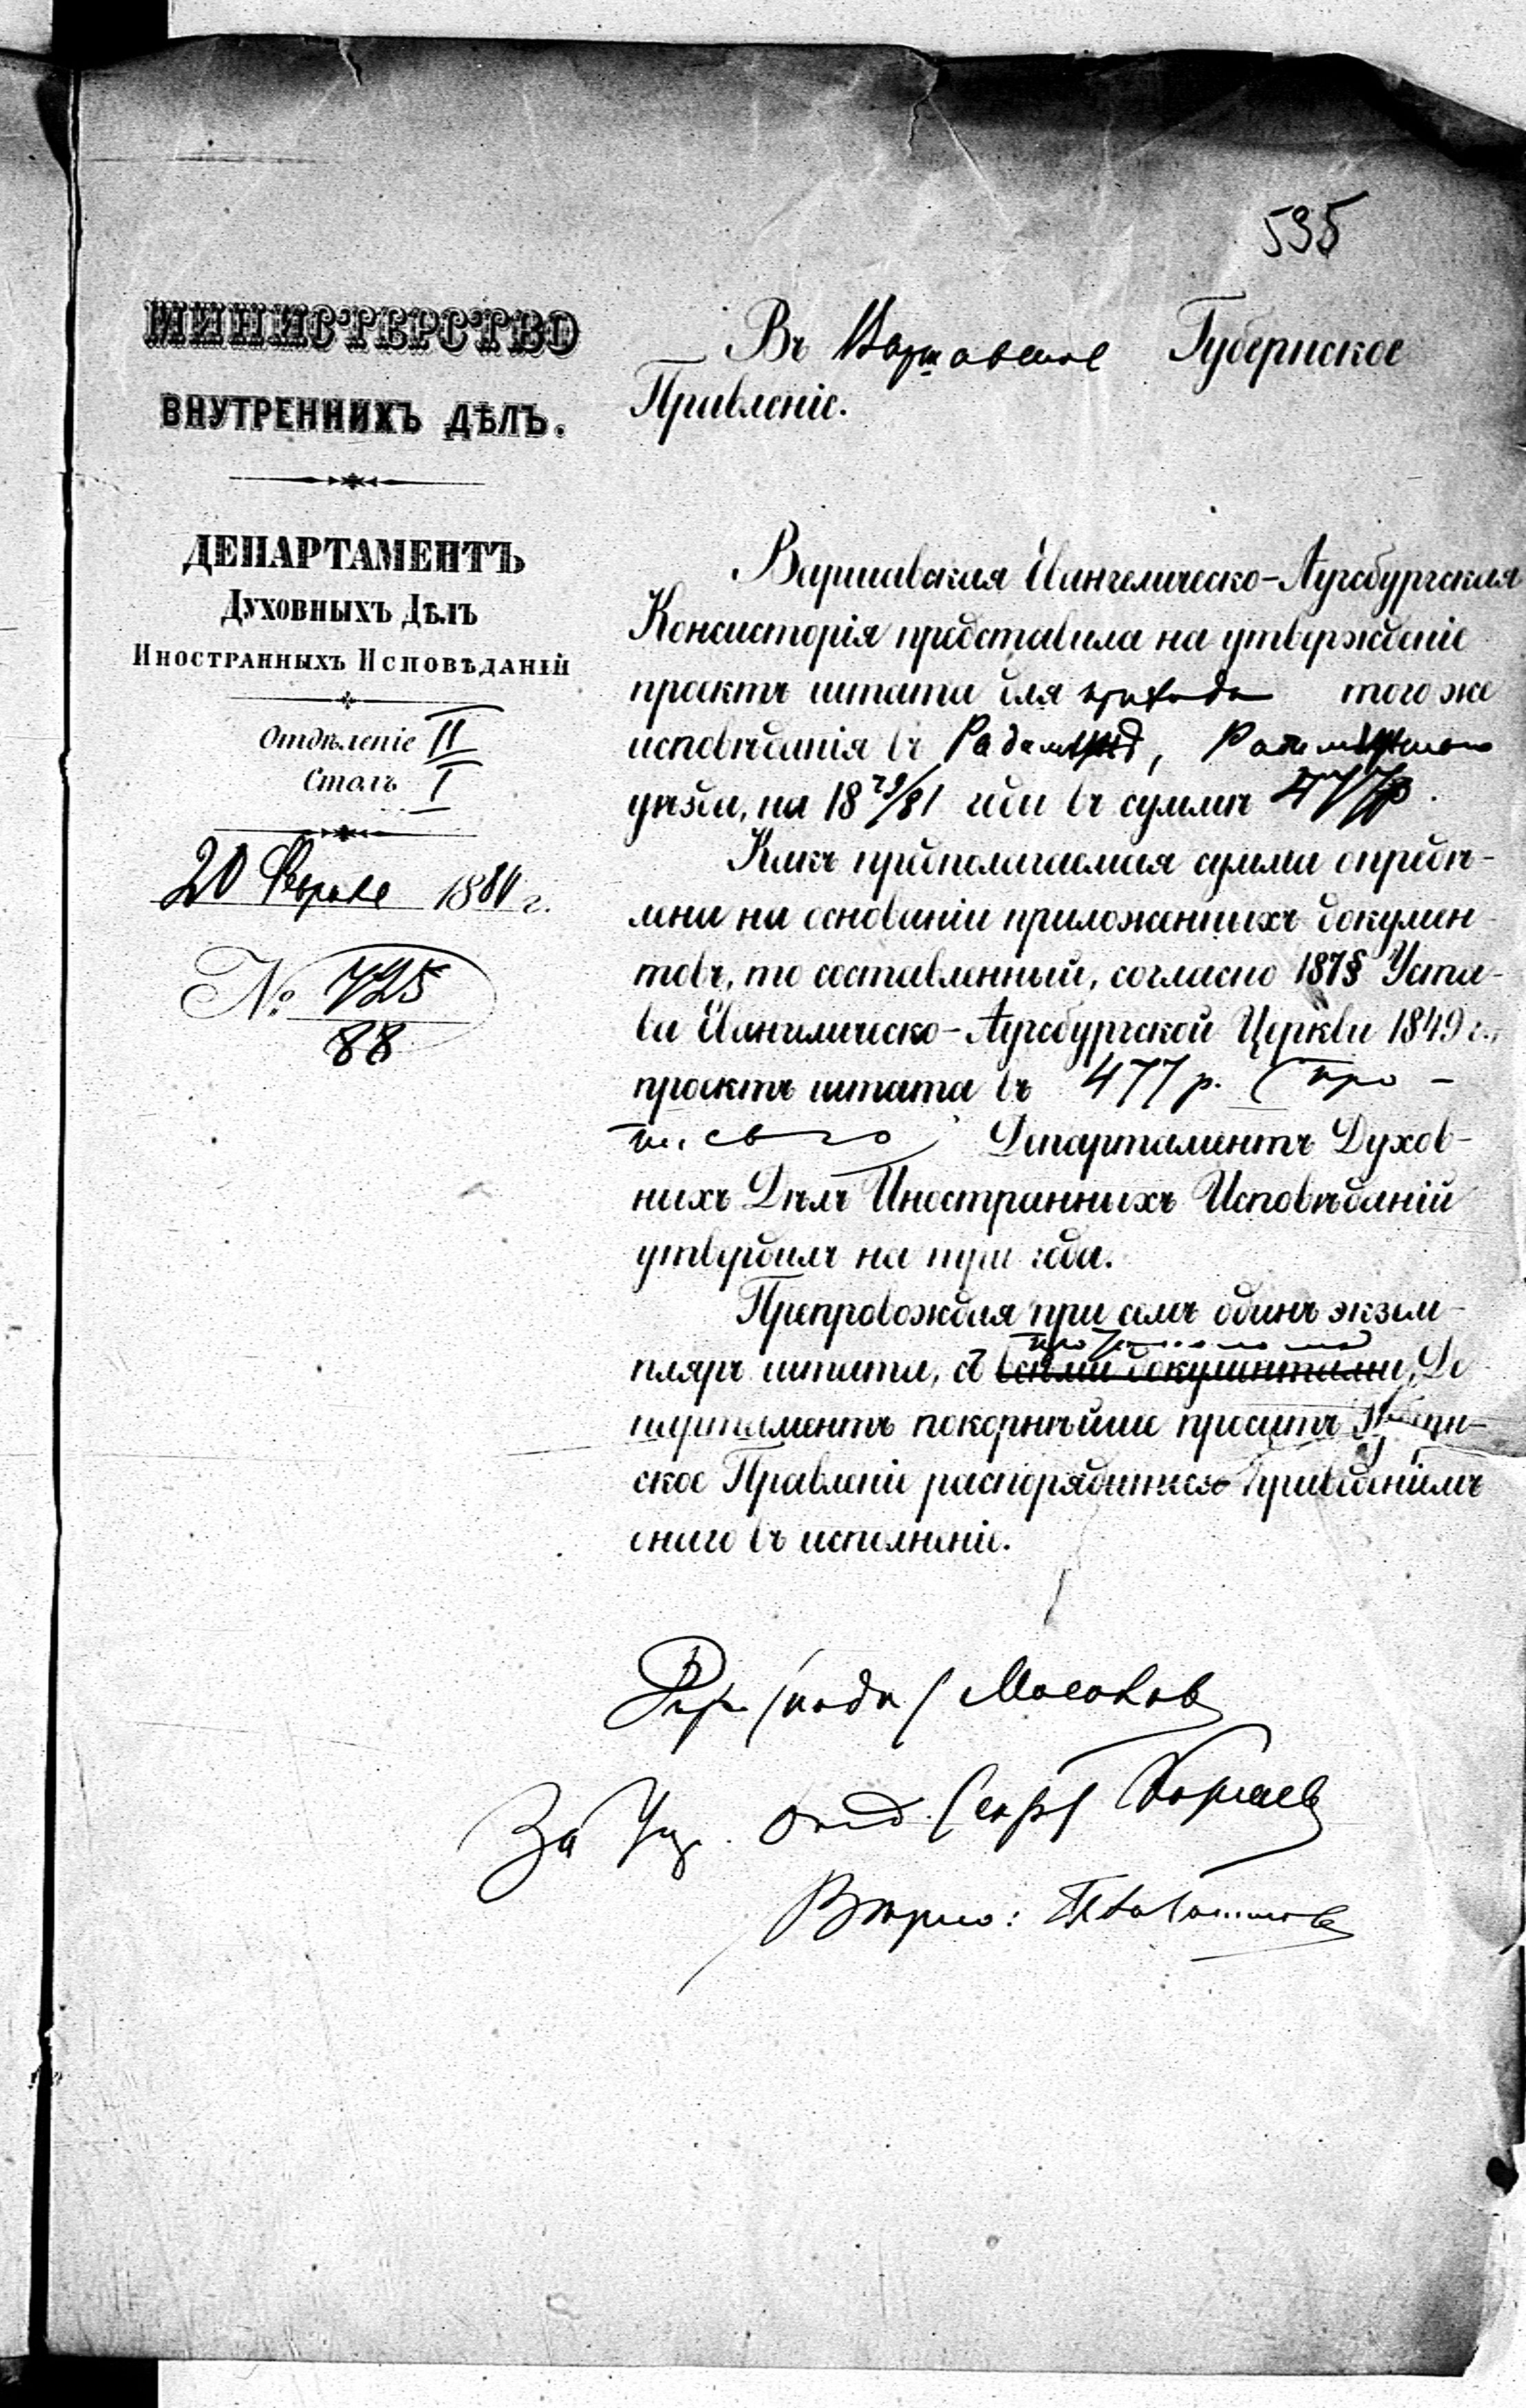 535
МИНИСТЕРСТВО
ВНУТРЕННИХЪ ДѢЛЪ.
ДЕПАРТАМЕНТЪ
Духовныхъ Дѣлъ
Иностранныхъ Исповѣданій
Отдѣленіе II
Столъ I
20 Февраля 1880 г.
№ 725
88
Въ Варшавское Губернское
Правленіе.
Варшавская Евангелическо-Аугсбургская
Консисторія представила на утвержденіе
проектъ штата для прихода того же
исповѣданія въ
уѣзда, на 18 79/81 года въ суммѣ 477 р.
Какъ предполагаемая сумма опредѣ-
лена на основаніи приложенныхъ докумен-
товъ, то составленный, согласно 187 § Уста-
ва Евангелическо-Аугсбургской Церкви 1849 г.,
проектъ штата въ 477 р. (про-
писью) Департаментъ Духов-
ныхъ Дѣлъ Иностранныхъ Исповѣданій
утвердилъ на три года.
Препровождая при семъ одинъ экзем-
пляръ штата, съ всѣми документами, Де
партаментъ покорнѣйше проситъ Губерн-
ское Правленіе распорядиться приведеніемъ
онаго въ исполненіе.
Дир. (подп) Мосолов
За Упр. отд. Секр
Вѣрно: